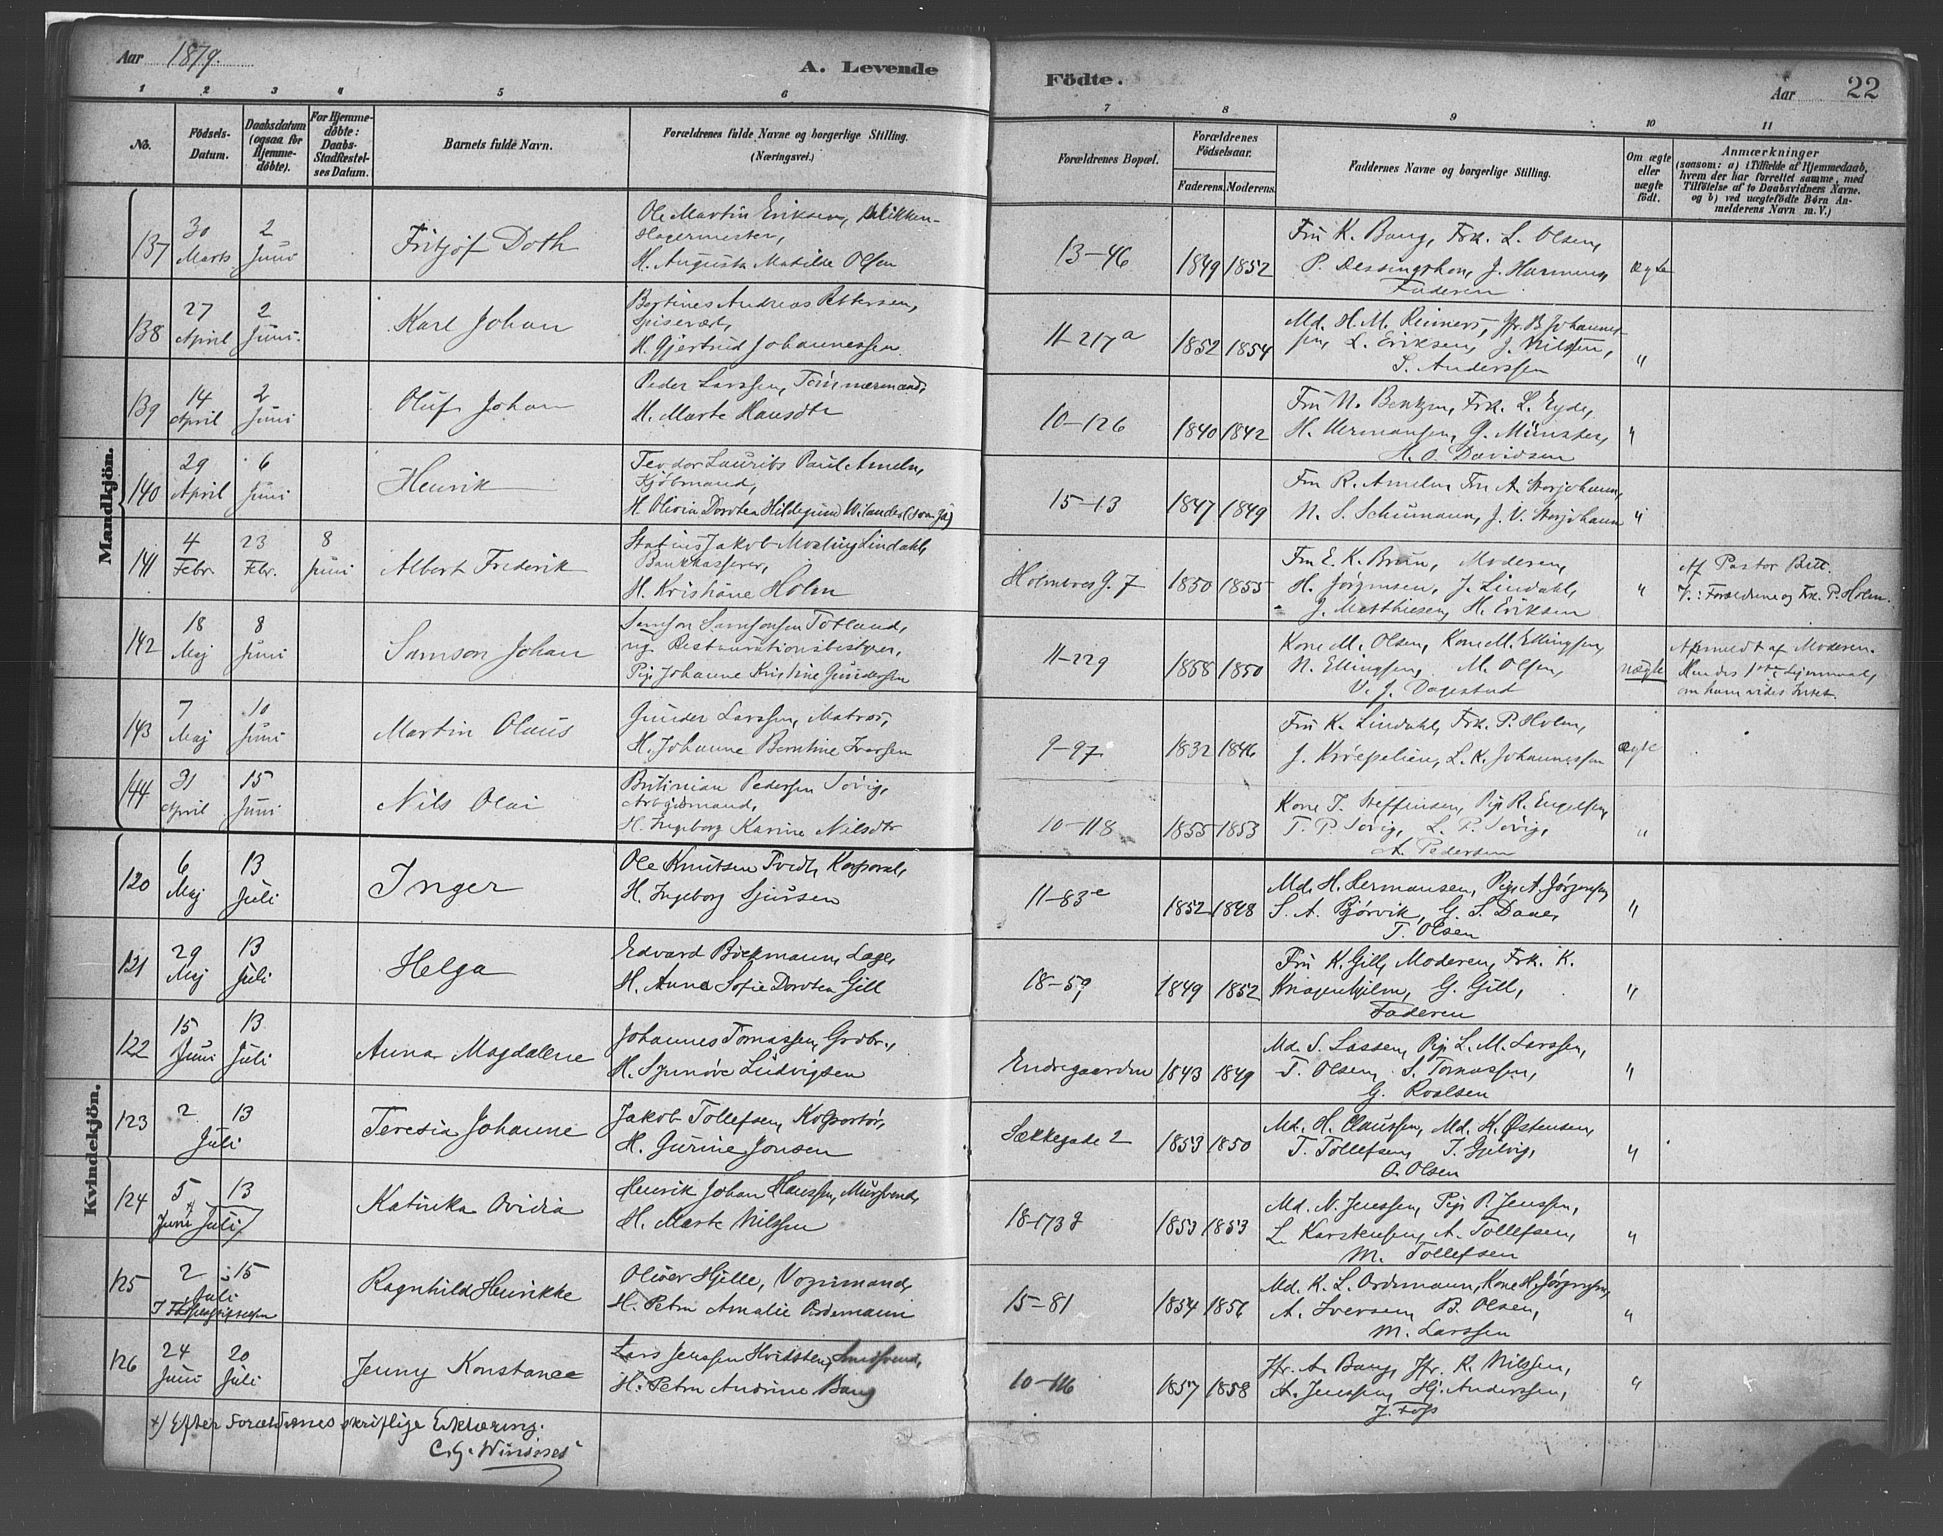 Aar 1879.
A. Levende
Födte.
Aar
22
1 2 3 4 5 6 7 8 9 10 11
No.
Födsels-Datum.
Daabsdatum (ogsaa for Hjemme-döbte).
For Hjemme-döbte: Daabs-Stadfæstel-ses Datum.
Barnets fulde Navn.
Forældrenes fulde Navne og borgerlige Stilling.
(Næringsvei.)
Forældrenes Bopæl.
Forældrenes Födselsaar.
Faderens. Moderens.
Faddernes Navne og borgerlige Stilling.
Om ægte eller uægte födt.
Anmærkninger
(saasom: a) i Tilfælde af Hjemmedaab, hvem der har forrettet samme, med Tilföielse af to Daabsvidners Navne. og b) ved uægtefödte Börn An-melderens Navn m. V.)
Mandkjön.
137 30 Marts 2 Juni Fritjof Doth
Ole Martin Eriksen, Blikken-
slagermester,
H. Augusta Matilde Olsen
13-46 1849 1852
Fru K. Bang, Frk. L. Olsen,
Faderen
ægte
138 27 April 2 Juni. Karl Johan
Bertines Andreas Pettersen,
Spisevært,
H. Gjertrud Johannessen.
11-217a 1852 1854
Md. H. M. Reimers, Jfr. B. Johannes-
sen, L. Eriksen, J. Nilssen,
S. Anderssen
"
139 14 April 2 Juni Oluf Johan
Peder Larssen, Tömmermand,
H. Marte Hansdtr
10-126 1840 1842
Fru N. Bentzen, Frk. L. Eyde,
H. Hermansen, G. Münster,
H. O. Davidsen
"
140 29 April 6 Juni Henrik
Teodor Laurits Paul Ameln,
Kjöbmand,
H. Olivia Dorotea Hildegund Wilander
15-13 1847 1849
Fru R. Ameln, Fru A. Storjohann,
N. S. Schumann, J. V. Storjohann
"
141 4 Febr. 23 Febr. 8 Juni Albert Frederik
Statius Jakob Mosling Lindahl,
Bankkasserer,
H. Kristiane Holm
Holmbres G. 7 1850 1855
Fru E. K. Brun, Moderen,
H. Jørgensen, J. Lindahl,
J. Matthiesen, H. Eriksen
"
Af Pastor Bett.
V.: Forældrene og Frk. P. Holm.
142 18 Maj 8 Juni Samson Johan
Samson Samsonsen Totland,
ug. Restaurationsbestyrer,
Pige Johanne Kristine Gundersen
11-229 1858 1850
Kone M. Olsen, Kone M. Ellingsen,
N. Ellingsen, M. Olsen,
V. J. Dagestad
uægte
Anmeldt af Moderen.
143 7 Maj 10 Juni Martin Olaus
Gunder Larssen, Matros,
H. Johanne Berntine Ivarsen
9-97 1832 1846
Fru K. Lindahl, Frk. P. Holm,
J. Krøepelien, L. K. Johannessen
ægte
144 31 April 15 Juni Nils Olai
Britinian Pedersen Søvig,
Arbeidsmand,
H. Ingeborg Karine Nilsdtr
10-118 1855 1853
Kone T. Steffensen, Pige R. Engelsen,
T. P. Søvig, L. P. Søvig,
A. Pedersen
"
Kvindekjön.
120 6 Maj 13 Juli Inger
Ole Knutsen Tvedt, Korporal,
H. Ingeborg Sjursen
11-83e 1852 1848
Md. H. Hermansen, Pige A. Jørgensen,
S. A. Bjørvik, G. S. Daae,
T. Olsen
"
121 29 Maj 13 Juli Helga
Edvard Böckmann, Læge,
H. Anna Sofie Dorotea Gill
18-59 1849 1852
Fru K. Gill, Moderen, Frk. K.
Knagenhjelm, G. Gill,
Faderen
"
122 15 Juni 13 Juli Anna Magdalene
Johannes Tomassen, Grdbr.,
H. Synnöve Ludvigsen
Endregaarden 1843 1849
Md. S. Lassen, Pige L. M. Larssen,
T. Olsen, S. Tomassen,
G. Roalsen
"
123 2 13 Juli Teresia Johanne
Jakob Tollefsen, Kolportör,
H. Gurine Jonsen
Sækkegade 2 1853 1850
Md. H. Claussen, Md. K. Østensen,
T. Tollefsen, T. Gjelvig,
O. Olsen
"
124 5 Juni 13 Juli Katinka Ovidia
Henrik Johan Hanssen, Mursvend,
H. Marte Nilssen
18-173g 1853 1853
Md. N. Jenssen, Pige P. Jenssen,
L. Karstensen, A. Tollefsen,
M. Tollefsen
"
125 2 15 Juli Ragnhild Henrikke
Oliver Hjelle, Vognmand,
H. Petra Amalie Ordemann
15-81 1854 1856
Md. K. L. Ordemann, Kone H. Jørgensen,
A. Iversen, B. Olsen,
M. Larssen
"
126 24 Juni 20 Juli Jenny Konstance
Lars Jenssen Hvidsten, Smedsvend,
H. Petra Andrine Bang
10-116 1857 1858
Jfr. A. Bang, Jfr. K. Nilssen,
A. Jenssen, Hj. Anderssen,
J. Foss
"
x) Efter Forældrenes skriftlige Erklæring.